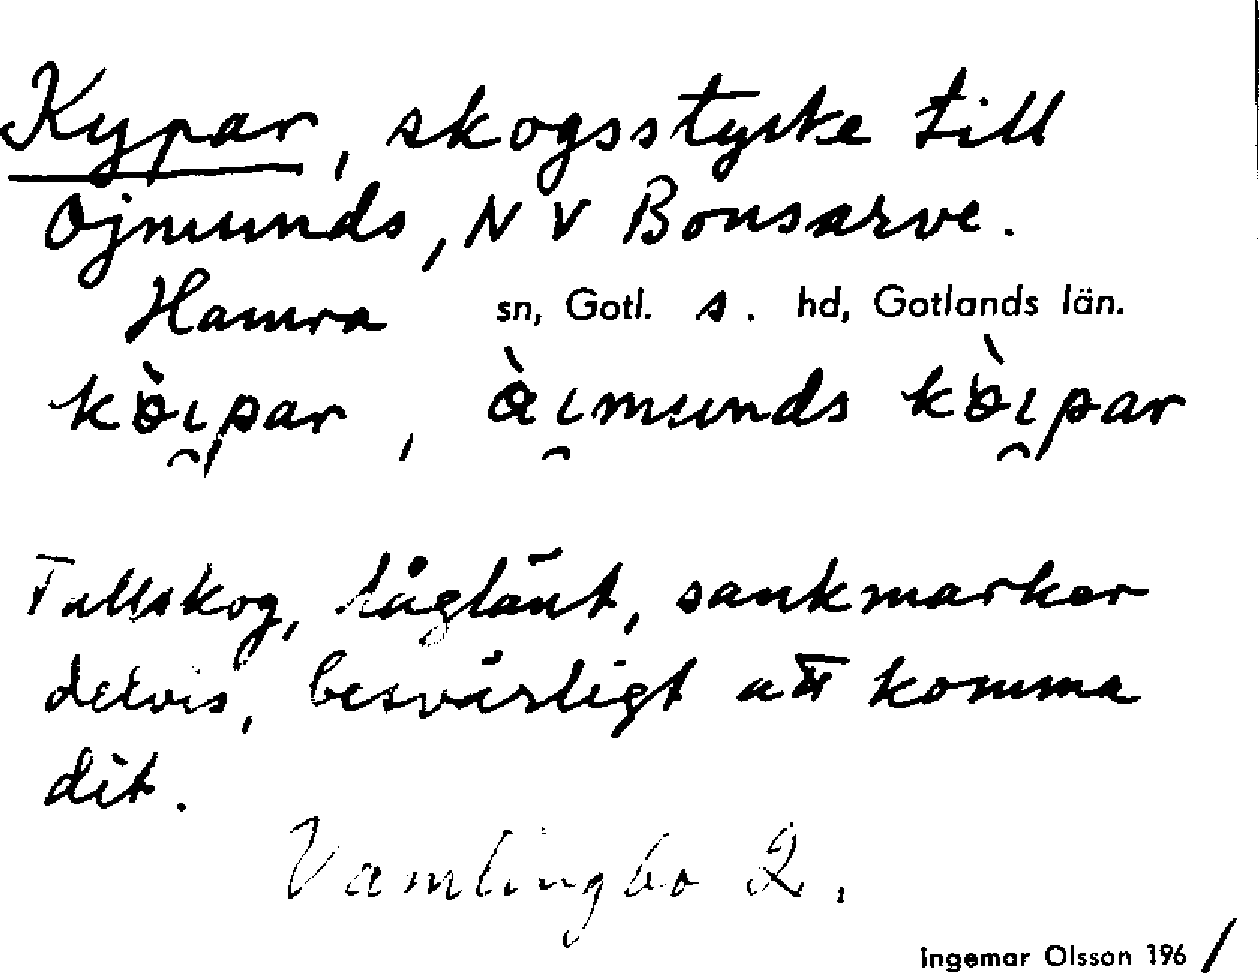 Kypar, skogsstycke till
Ojmunds, NV Bonsarve.
Hamra sn, Gotl. s. hd, Gotlands län.
kɵ̀i̯par, ài̯munds kɵ̀i̯par
Tallskog, låglänt, sankmarker
delvis, besvärligt att komma
dit.
Vamlingbo 2.
Ingemar Olsson 1961